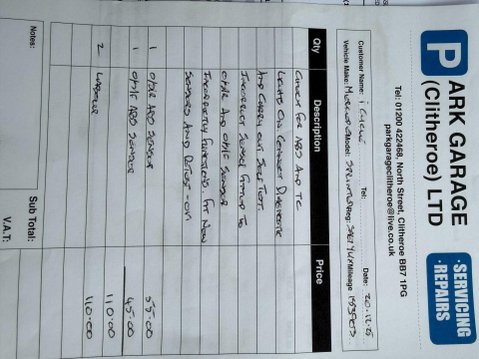 P ARK GARAGE
(Clitheroe) LTD
·SERVICING
·REPAIRS
Tel: 01200 422468, North Street, Clitheroe BB7 1PG
parkgarageclitheroe@live.co.uk
Customer Name: Tel: Date: 20.12.15
Vehicle Make: Model: SPRINTER Reg: Mileage
Qty Description Price
CHECK FOR ABS AND TC
LIGHTS ON. CONNECT DIAGNOSTIC
AND CARRY OUT SELF TEST.
INCORRECT SENSOR FITTED TO
O/S/R AND O/S/F SENSOR
INCORRECTLY FITTED. FIT NEW
SENSORS AND RETEST - OK
1 O/S/R ABS SENSOR 55.00
1 O/S/F ABS SENSOR 45.00
110.00
2 LABOUR 110.00
Notes:
Sub Total:
V.A.T: